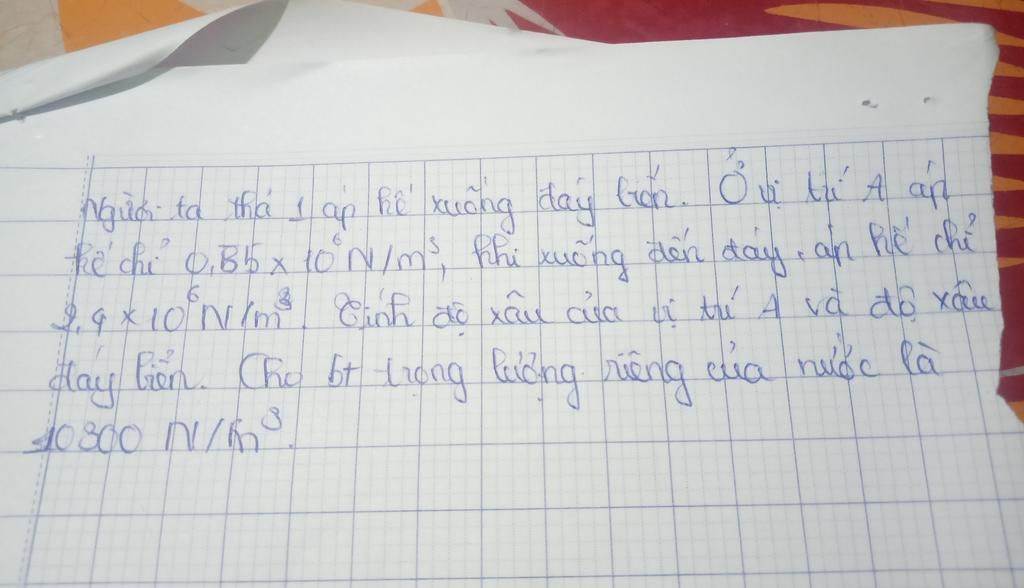 Người ta thả 1 áp kế xuống đáy biển. Ở vị trí A áp
kế chỉ 0,85 × 10⁶ N/m³, khi xuống đến đáy, áp kế chỉ
2,4 × 10⁶ N/m³. Tính độ xâu của vị trí A và độ xâu
đáy biển. Cho bt trọng lượng riêng của nước là
10300 N/m³.